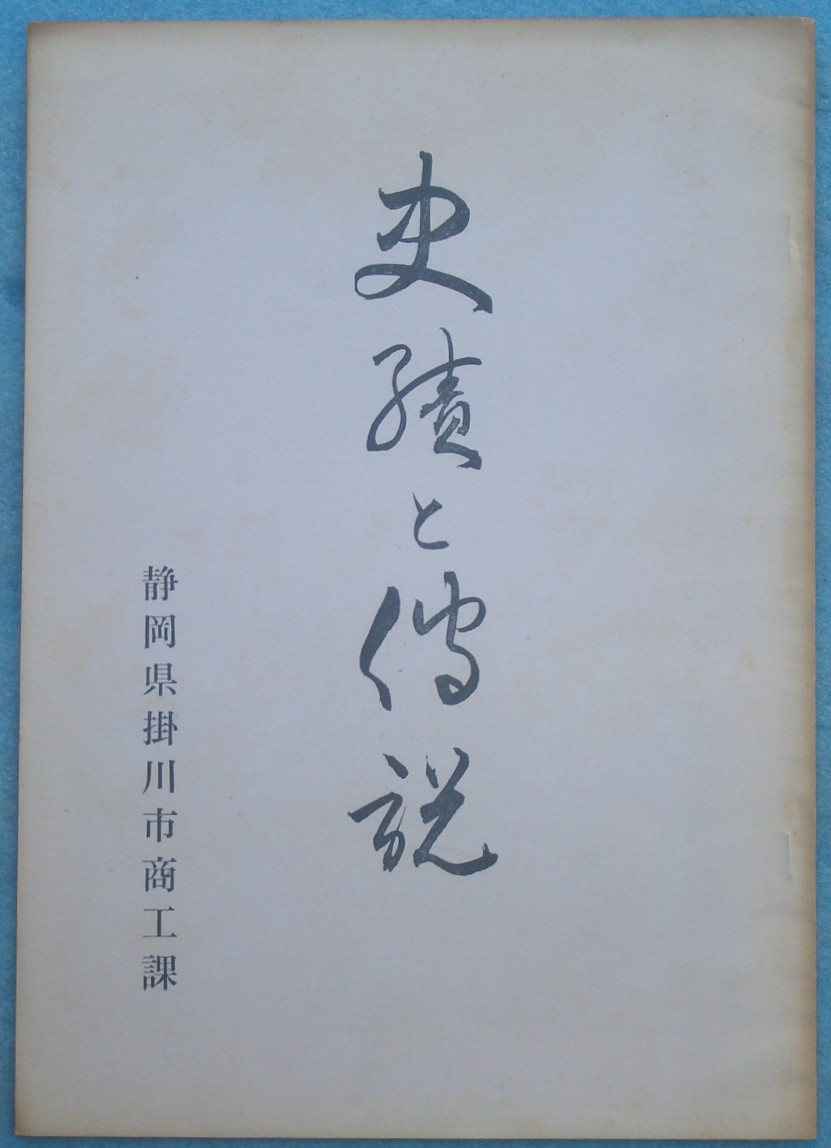 史績と傳説
静岡県掛川市商工課